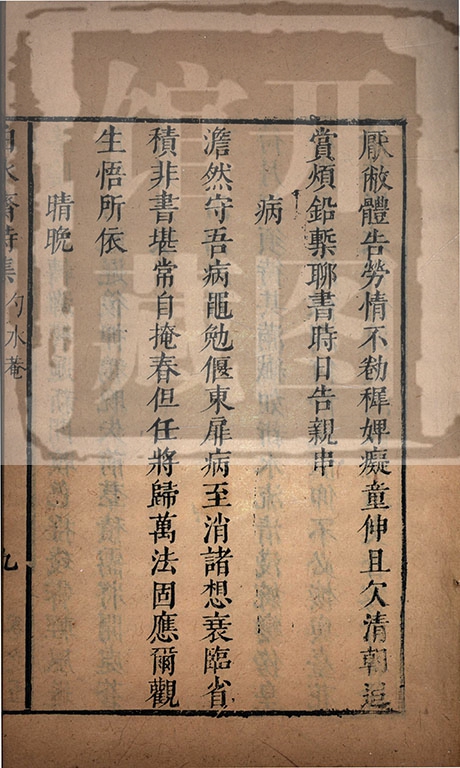 厭敝體告勞情不勌穉婢癡童伸且欠清朝追
賞煩鉛槧聊書時日告親串
病
澹然守吾病黽勉偃東扉病至消諸想衰臨省
積非書堪常自掩春但任將歸萬法固應爾觀
生悟所依
晴晚
水齋詩集 勺水菴 九